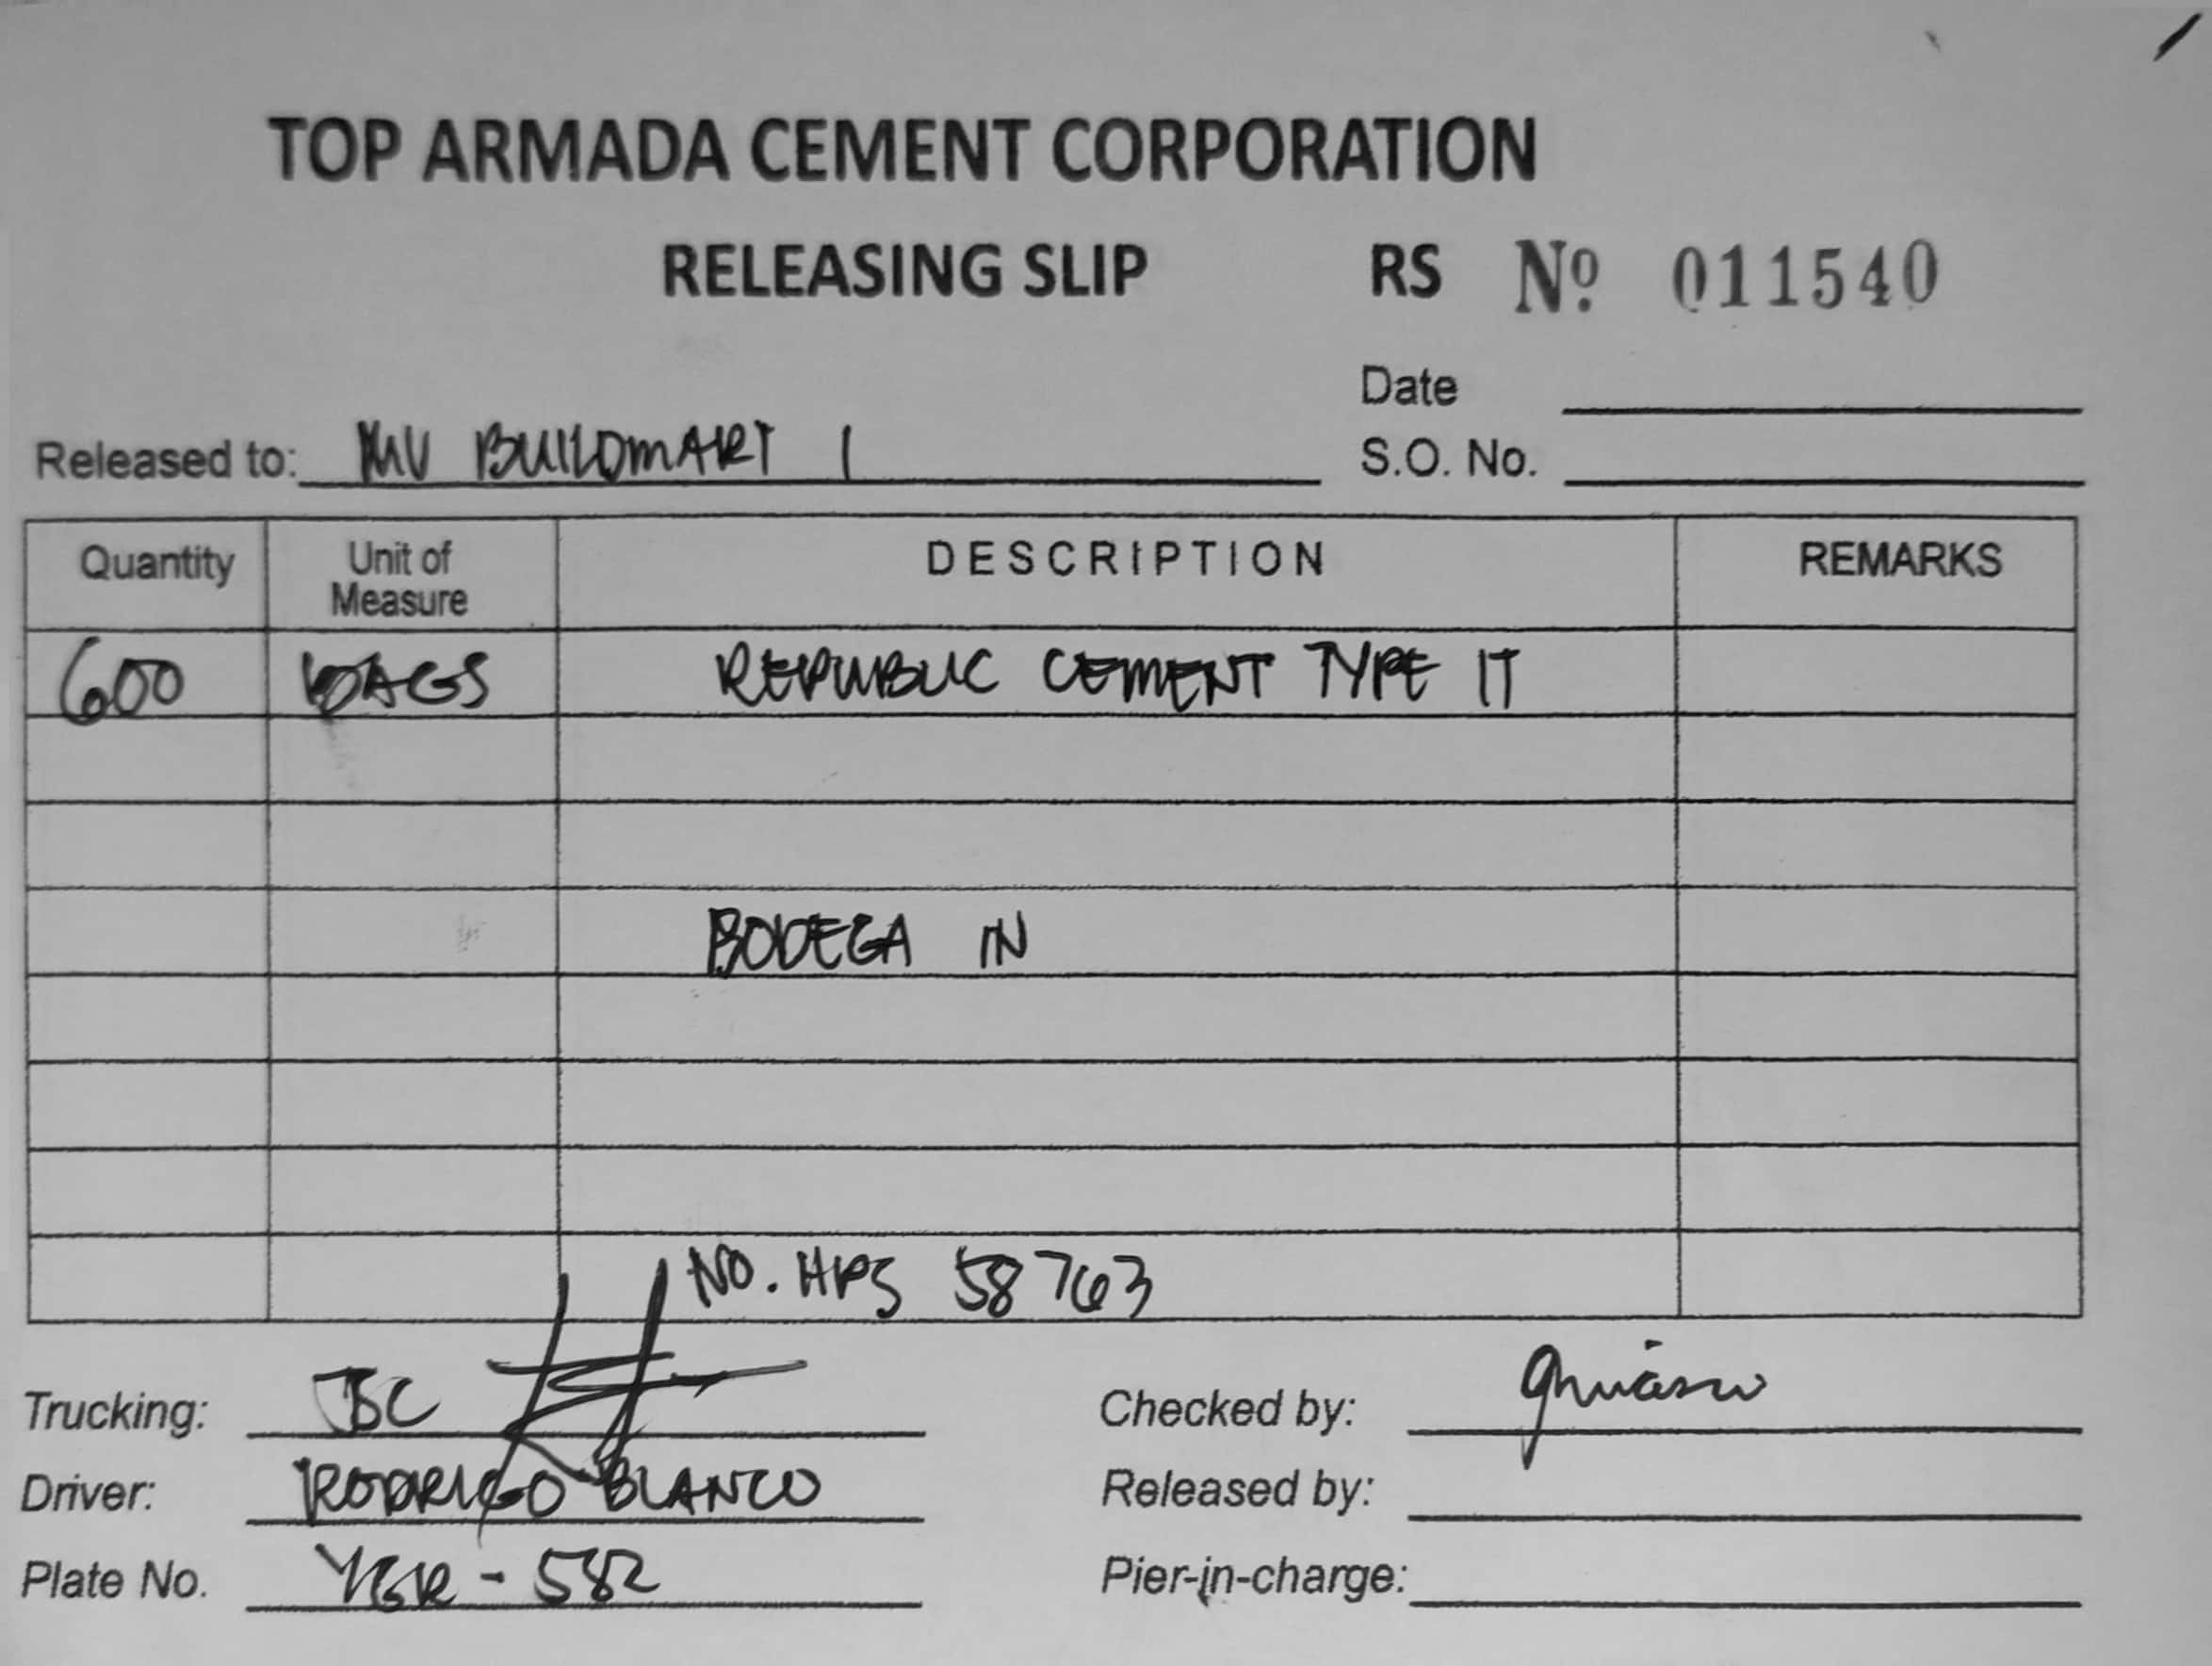 TOP ARMADA CEMENT CORPORATION
RELEASING SLIP RS Nº 011540
Date
Released to: MV BUILDMART 1
S.O. No.
Quantity Unit of Measure DESCRIPTION REMARKS
600 BAGS REPUBLIC CEMENT TYPE 1T
BODEGA IN
NO. HPS 58763
Trucking: JBC
Checked by:
Driver: RODRIGO BLANCO
Released by:
Plate No. YGR - 582
Pier-in-charge: